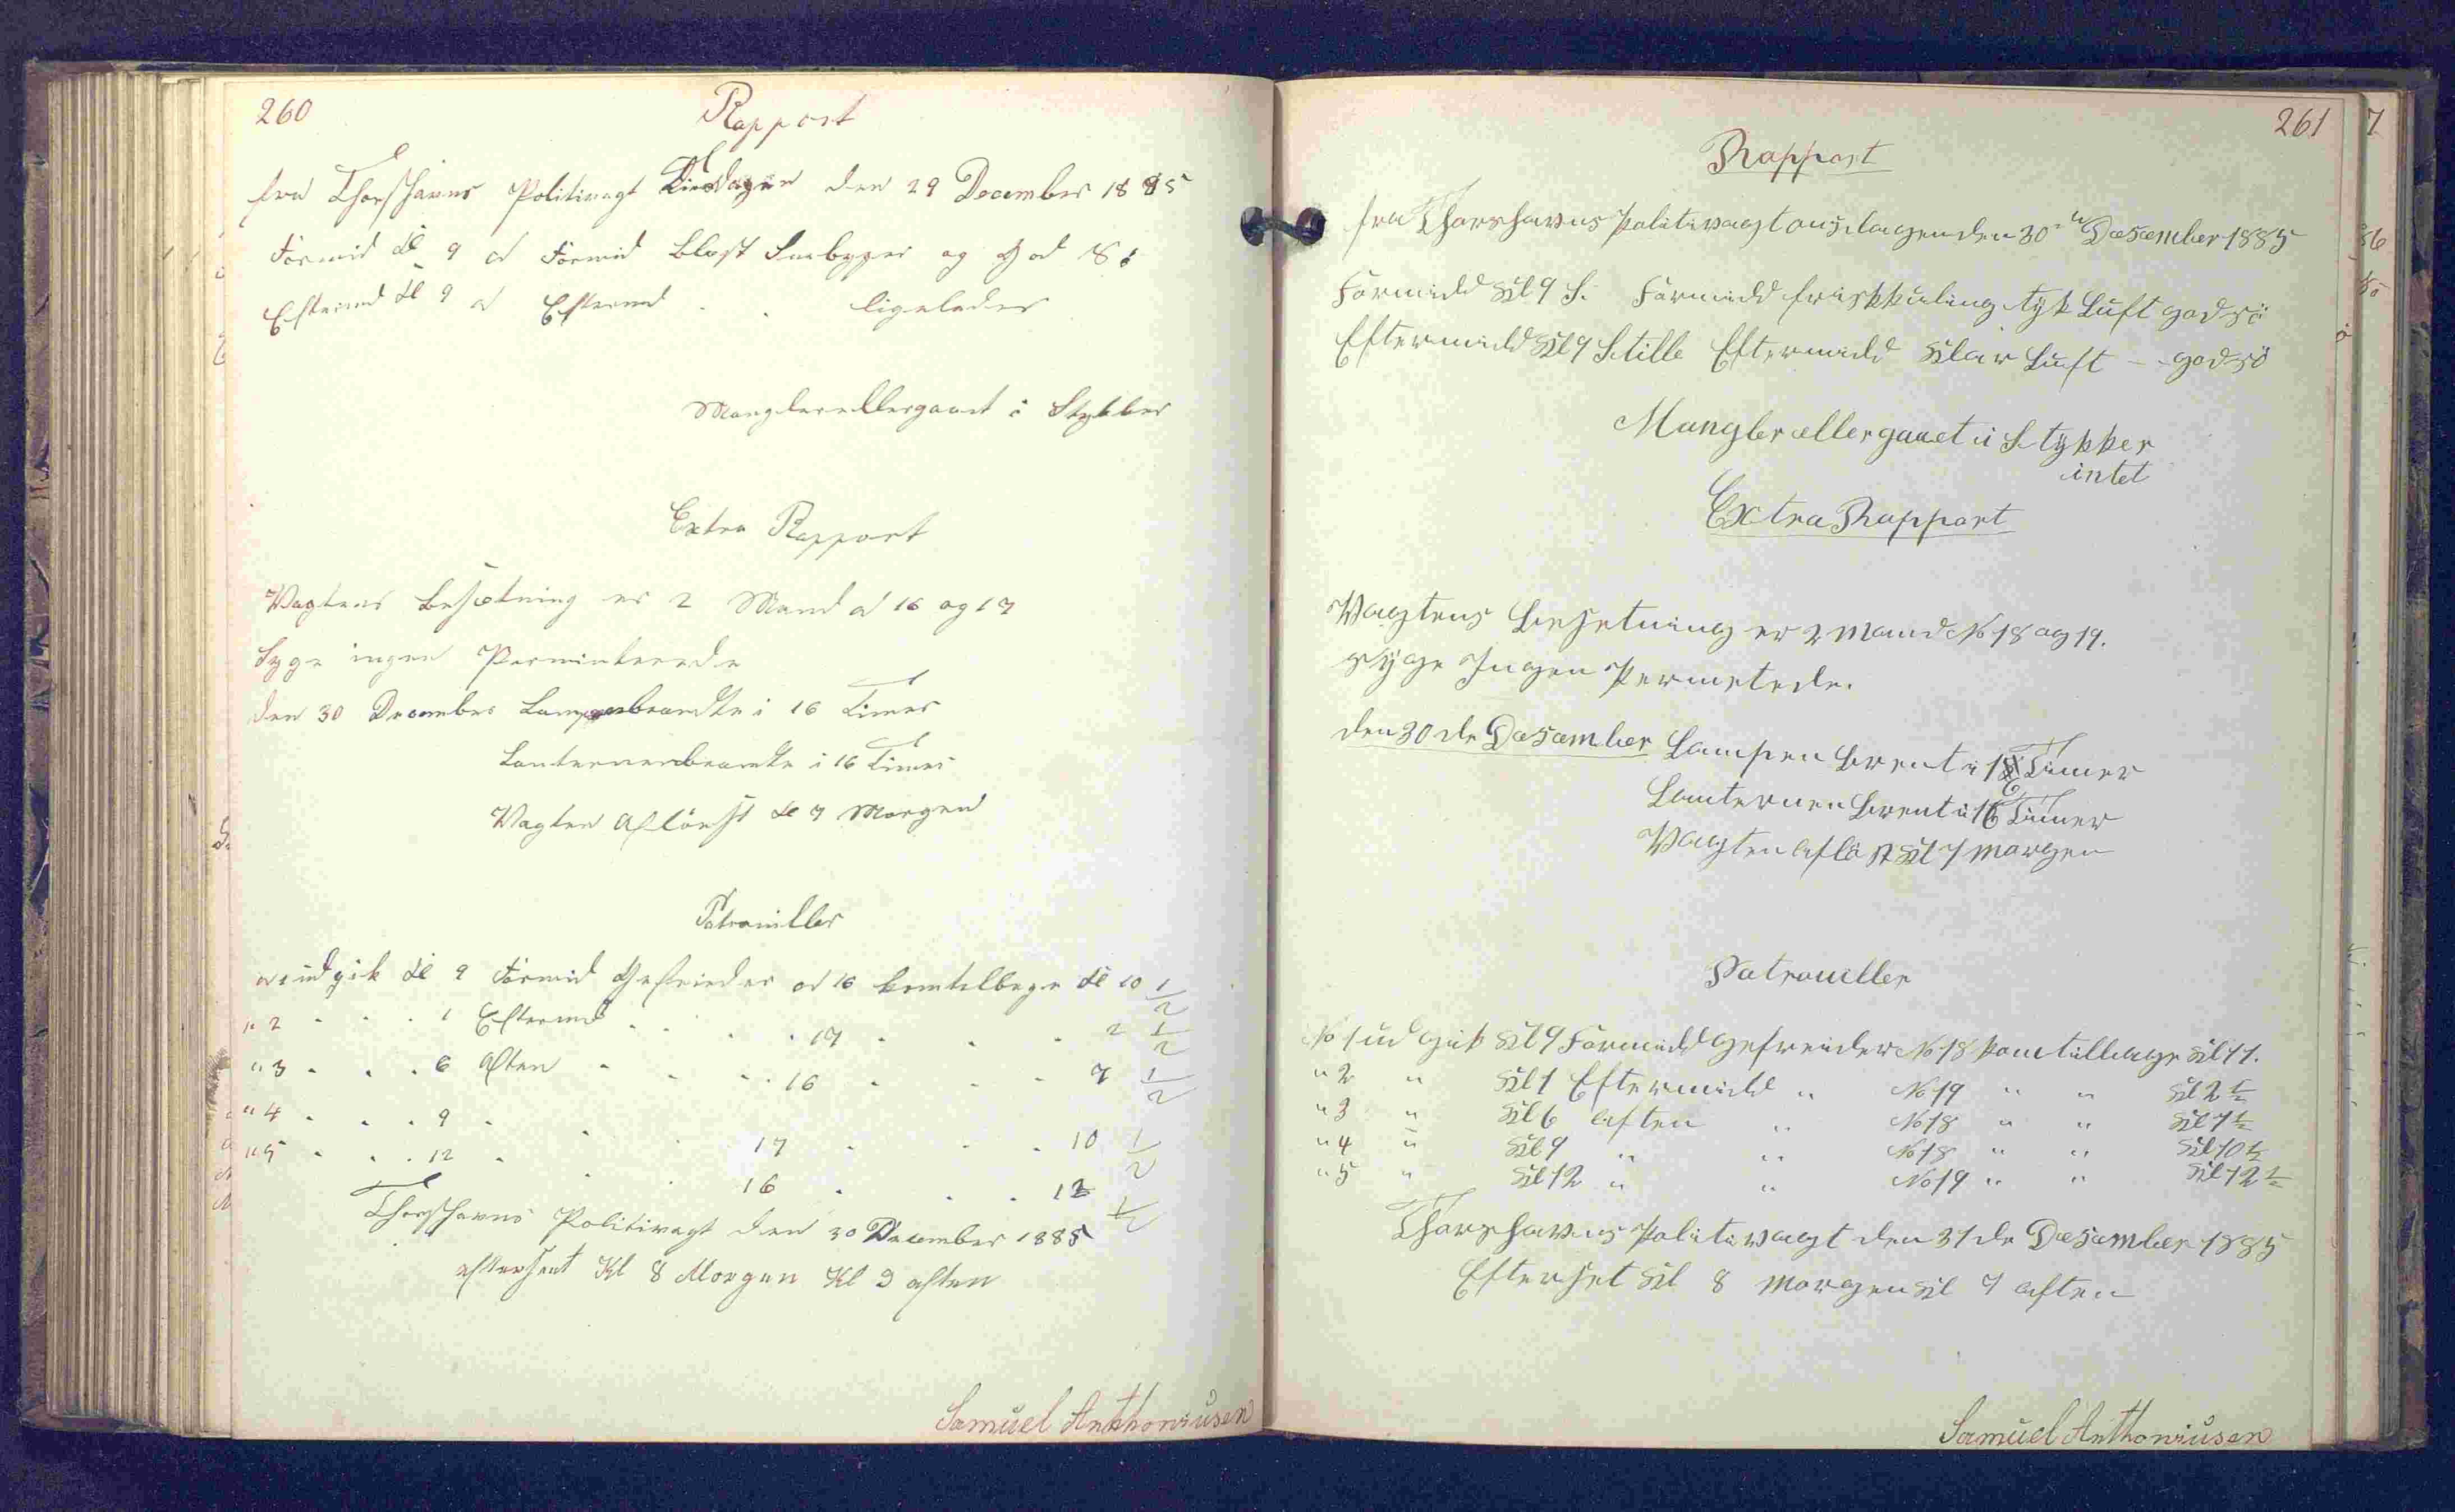 260
Rapport
fra Thorshavns Politivagt Tirsdagen den 29 December 1885
Formid Kl 9 Formid Blæst Snebyger og God Sö
Eftermd Kl 9 Eftermd " " ligeledes
Manglerellergaaet i Stykker
Extra Rapport
Vagtens Besætning er 2 Mand No 16 og 17
Syge ingen Permiterede
den 30 December Lampenbrændte i 16 Timer
Lanternenbrændte i 16 Timer
Vagten Aflöst Kl 7 Morgen
Patrouiller
No 1 udgik Kl 9 Formid Gefreider No 16 komtilbage Kl 10 1/2
" 2 " " " 1 Eftermd " " " 17 " " " 2 1/2
" 3 " " " 6 Aften " " " 16 " " " 7 1/2
" 4 " " " 9 " " " 17 " " " 10 1/2
" 5 " " " 12 " " " 16 " " " 12 1/2
Thorshavns Politivagt den 30 December 1885
efterseet Kl 8 Morgen Kl 9 aften
Samuel Anthoniusen
261
Rapport
fra Thorshavns Politivagt onsdagen den 30te Desember 1885
Formidd Kl 9 S. Formidd friskkuling tyk Luft god sö
Eftermidd Kl 9 Stille Eftermidd Klar Luft - god sö
Mangler eller gaaet i Stykker
intet
Extra Rapport
Vagtens Besetning er 2 Mand No 18 og 19.
Syge Ingen Permetede.
den 30de Desember Lampen brent i 16 Timer
Lanternen brent i 16 Timer
Vagten aflöst Kl 7 morgen
Patrouiller
No 1 udgik Kl 9 Formidd Gefreider No 18 komtilbage Kl 11.
" 2 " Kl 1 Eftermidd " No 19 " " Kl 2 1/2
" 3 " Kl 6 aften " No 18 " " Kl 7 1/2
" 4 " Kl 9 " " No 18 " " Kl 10 1/2
" 5 " Kl 12 " " No 19 " " Kl 12 1/2
Thorshavns Politivagt den 31de Desember 1885
Efterset Kl 8 morgen Kl 9 aften
Samuel Anthoniusen